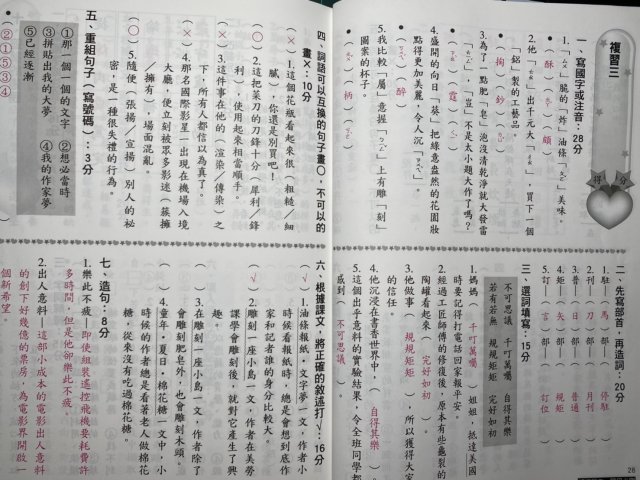 複習三
得分
一、寫國字或注音：28分
1.「ㄘㄨㄟˋ」脆的「炸」油條「ㄆㄛ」美味。
(酥)(ㄓㄚˊ)(頗)
2.他「ㄊㄠ」出千元大「ㄔㄠ」，買下一個
「鋁」製的工藝品。
(掏)(鈔)(ㄌㄩˇ)
3.為了一點肥「皂」泡沒清乾淨就大發雷
「ㄊㄧㄥˊ」，「豈」不是太小題大作了嗎？
(ㄗㄠˋ)(霆)(ㄑㄧˇ)
4.盛開的向日「葵」把綠意盎然的花園妝
點得更加美麗，令人沉「ㄗㄨㄟˋ」。
(ㄎㄨㄟˊ)(醉)
5.我比較「屬」意握「ㄅㄧㄥˇ」上有雕「刻」
圖案的杯子。
(ㄓㄨˇ)(柄)(ㄎㄜˋ)
二、先寫部首，再造詞：20分
1.駐—(馬)部—(停駐)
2.刊—(刀)部—(月刊)
3.普—(日)部—(普通)
4.矩—(矢)部—(規矩)
5.訂—(言)部—(訂位)
三、選詞填寫：15分
不可思議 千叮萬囑 自得其樂
若有若無 規規矩矩 完好如初
1.媽媽(千叮萬囑)姐姐，抵達美國
時要記得打電話回家報平安。
2.經過工匠師傅的修復後，原本有些龜裂的
陶罐看起來(完好如初)。
3.他做事(規規矩矩)，所以獲得大家
的信任。
4.他沉浸在書香世界中，(自得其樂)。
5.這個出乎意料的實驗結果，令全班同學都
感到(不可思議)。
28
四、詞語可以互換的句子畫○，不可以的
畫×：10分
(×)1.這個花瓶看起來很(粗糙／細
膩)，你還是別買吧！
(○)2.這把菜刀的刀鋒十分(犀利／鋒
利)，使用起來相當順手。
(×)3.這件事在他的(渲染／傳染)之
下，所有人都信以為真了。
(○)4.那名國際影星一出現在機場入境
大廳，便立刻被眾多影迷(簇擁
／擁有)，場面混亂。
(○)5.隨便(張揚／宣揚)別人的祕
密，是一種很失禮的行為。
五、重組句子(寫號碼)：3分
①那一個一個的文字 ②想必當時
③拼貼出我的大夢 ④我的作家夢
⑤已經逐漸
(②①⑤③④)
六、根據課文，將正確的敘述打√：16分
(√)1.油條報紙·文字夢一文，作者小
時候看報紙時，總是會想到底作
家和記者誰的身分比較大。
(√)2.雕刻一座小島一文，作者在美勞
課學會雕刻後，就對它產生了興
趣。
( )3.在雕刻一座小島一文，作者除了
會雕刻肥皂外，也會雕刻木頭。
( )4.童年·夏日·棉花糖一文中，小
時候的作者總是看著老人做棉花
糖，從來沒有吃過棉花糖。
七、造句：8分
1.樂此不疲—即使組裝遙控飛機要耗費許
多時間，但是他卻樂此不疲。
2.出人意料—這部小成本的電影出人意料
的創下好幾億的票房，為電影界開啟一
個新希望。